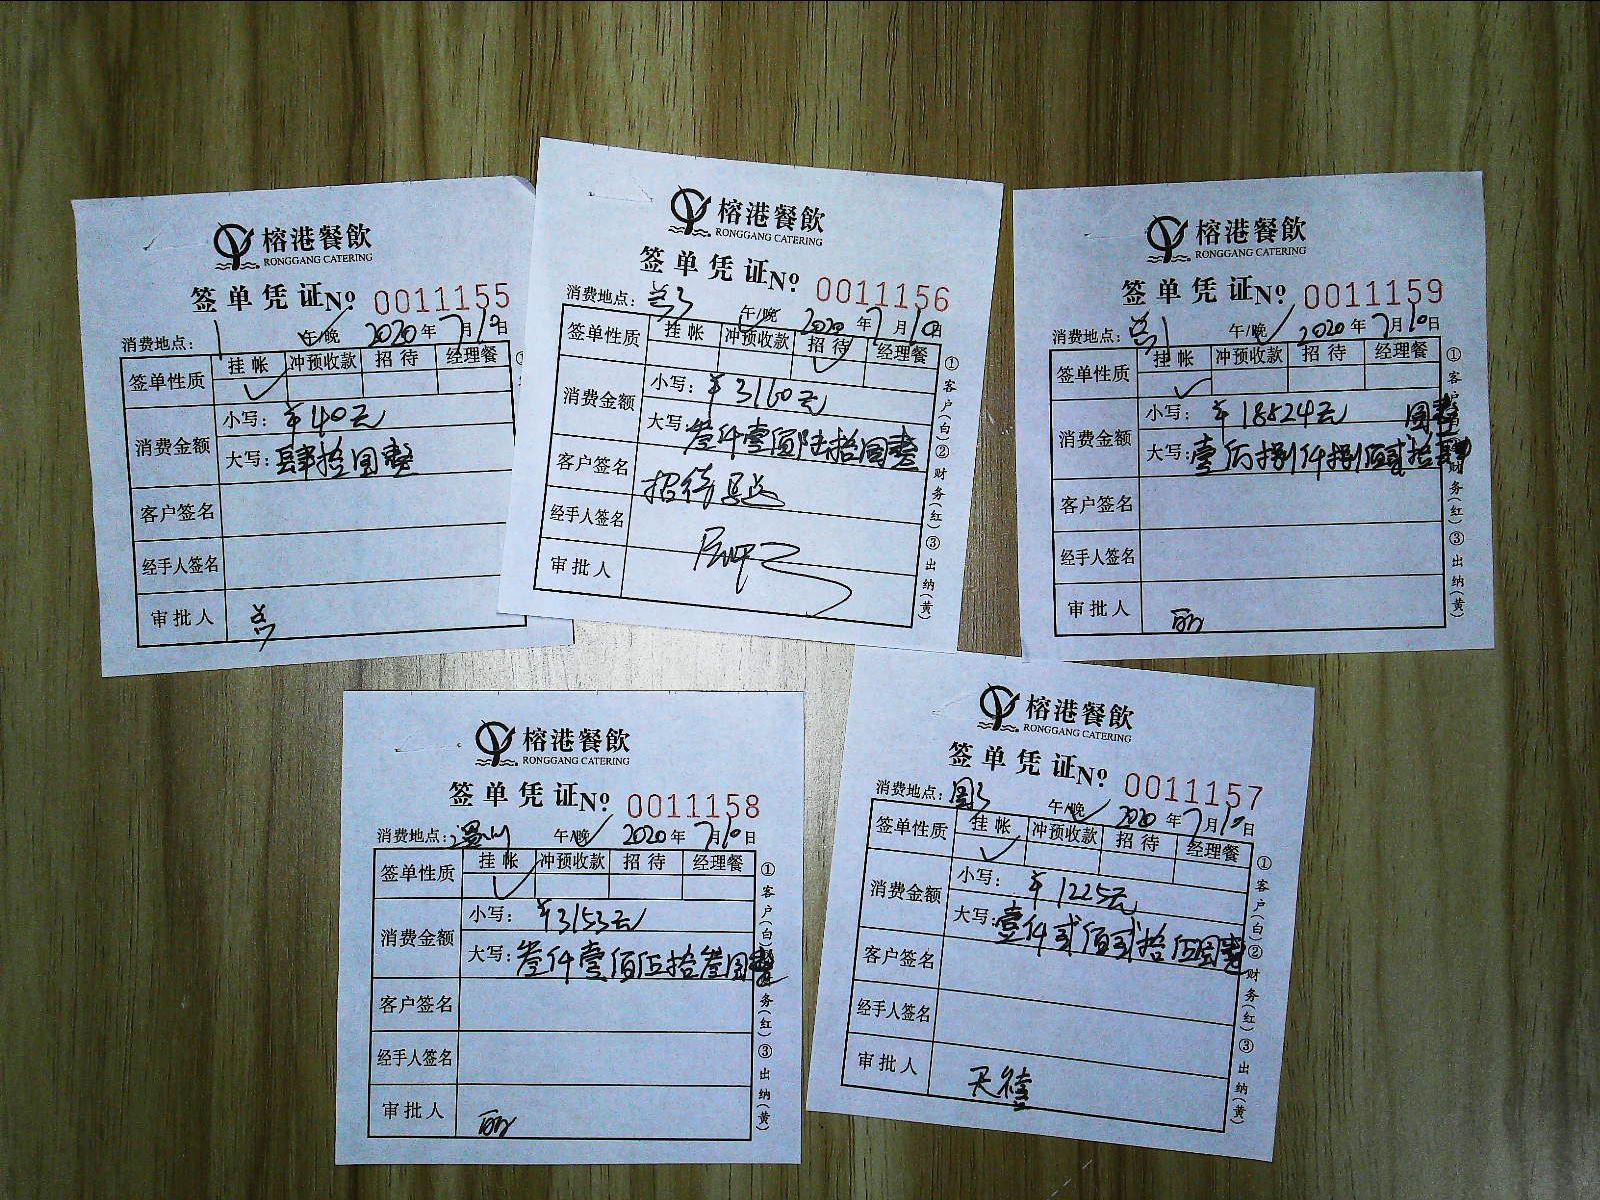 榕港餐飲
RONGGANG CATERING
签单凭证№ 0011155
消费地点： 午/晚 2020年7月10日
签单性质 挂帐 冲预收款 招待 经理餐
消费金额 小写：￥40元
大写：肆拾圆整
客户签名
经手人签名
审批人
榕港餐飲
RONGGANG CATERING
签单凭证№ 0011156
消费地点： 午/晚 2020年7月10日
签单性质 挂帐 冲预收款 招待 经理餐
消费金额 小写：￥3160元
大写：叁仟壹佰陆拾圆整
客户签名 招待
经手人签名
审批人
①客户(白)②财务(红)③出纳(黄)
榕港餐飲
RONGGANG CATERING
签单凭证№ 0011159
消费地点： 午/晚 2020年7月10日
签单性质 挂帐 冲预收款 招待 经理餐
消费金额 小写：￥18824元
大写：壹 捌仟捌佰贰拾 圆整
客户签名
经手人签名
审批人
①客户 财务(红)③出纳(黄)
榕港餐飲
RONGGANG CATERING
签单凭证№ 0011158
消费地点：温州 午/晚 2020年7月10日
签单性质 挂帐 冲预收款 招待 经理餐
消费金额 小写：￥3153元
大写：叁仟壹佰伍拾叁圆整
客户签名
经手人签名
审批人
①客户(白) 务(红)③出纳(黄)
榕港餐飲
RONGGANG CATERING
签单凭证№ 0011157
消费地点： 午/晚 2020年7月10日
签单性质 挂帐 冲预收款 招待 经理餐
消费金额 小写：￥1225元
大写：壹仟贰佰贰拾伍圆整
客户签名
经手人签名
审批人
①客户(白)②财务(红)③出纳(黄)